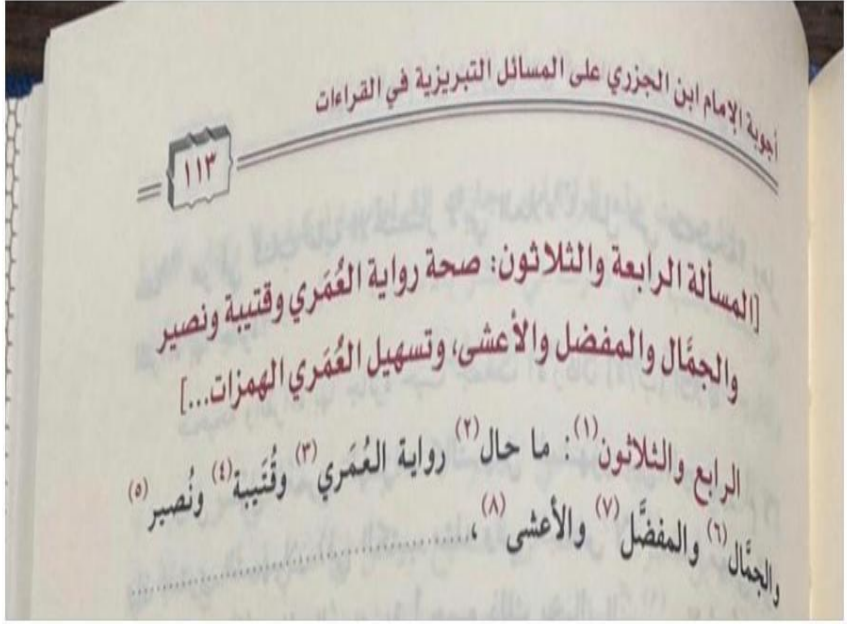 أجوبة الإمام ابن الجزري على المسائل التبريزية في القراءات
١١٣
[المسألة الرابعة والثلاثون: صحة رواية العُمَري وقتيبة ونصير
والجمَّال والمفضل والأعشى، وتسهيل العُمَري الهمزات...]
الرابع والثلاثون(١): ما حال(٢) رواية العُمَري(٣) وقُتَيبة(٤) ونُصير(٥)
والجمَّال(٦) والمفضَّل(٧) والأعشى(٨)، ..............................